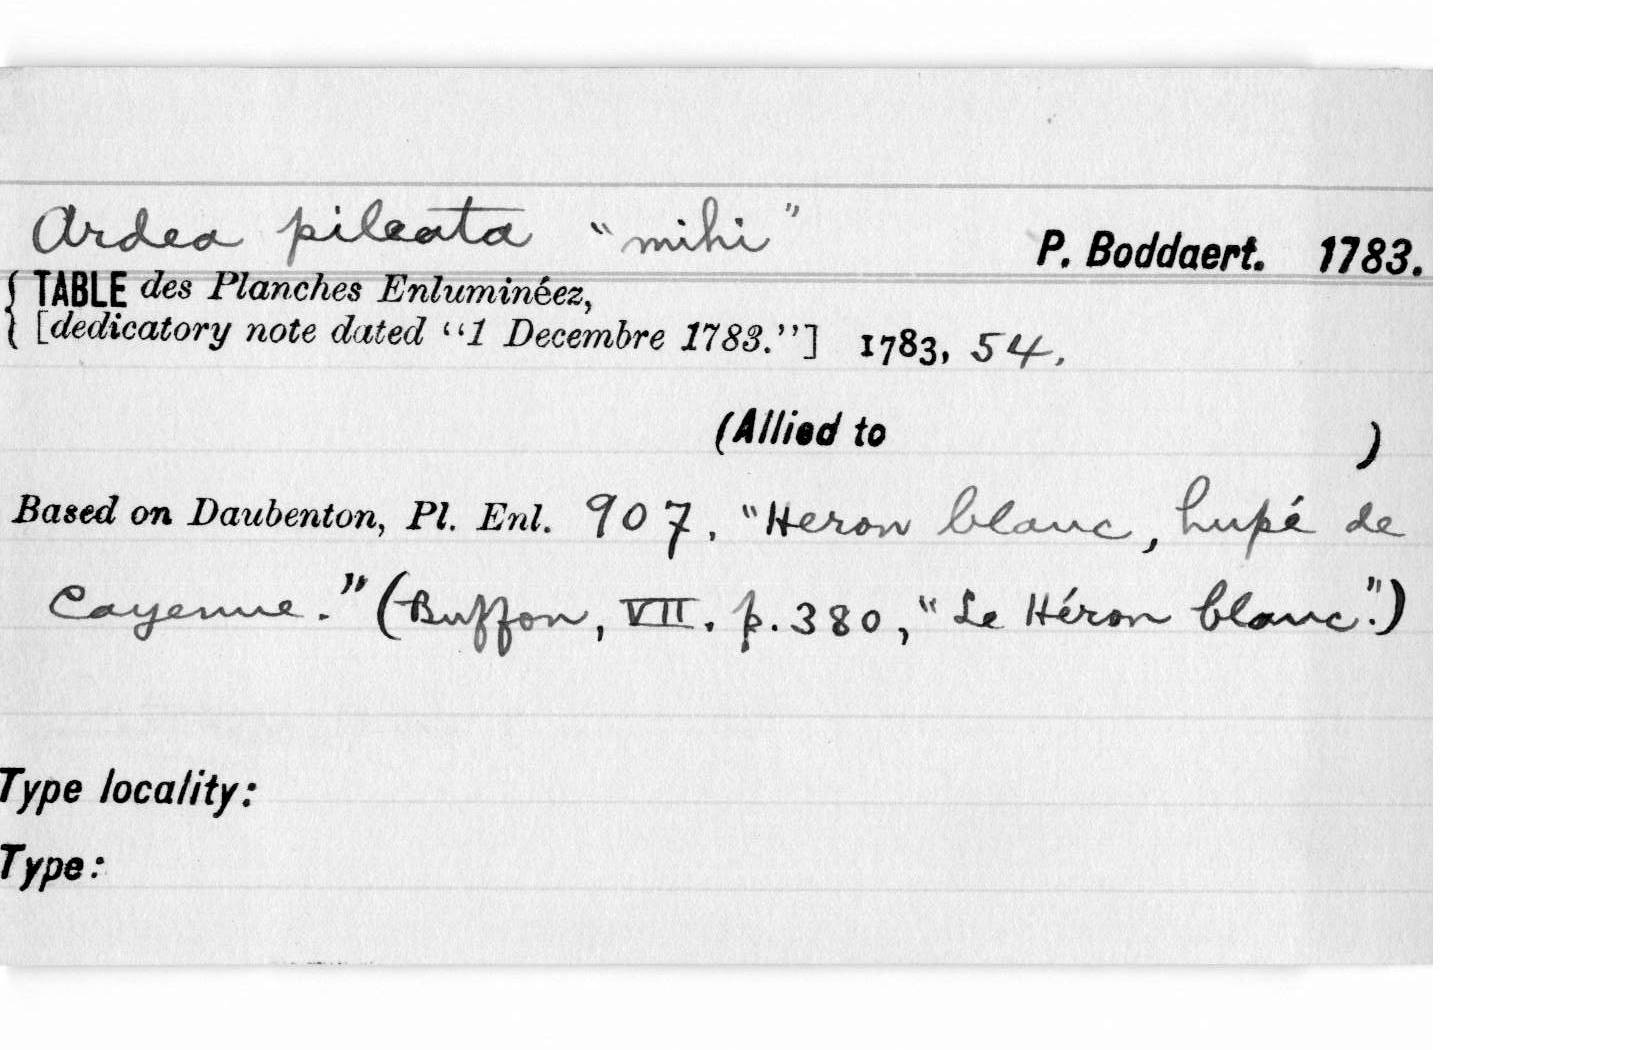 Ardea pileata "mihi" P. Boddaert. 1783.
{ TABLE des Planches Enluminéez,
[dedicatory note dated "1 Decembre 1783."] 1783, 54.
(Allied to )
Based on Daubenton, Pl. Enl. 907, "Heron blanc, hupé de
Cayenne." (Buffon, VII. p. 380, "Le Héron blanc".)
Type locality:
Type: